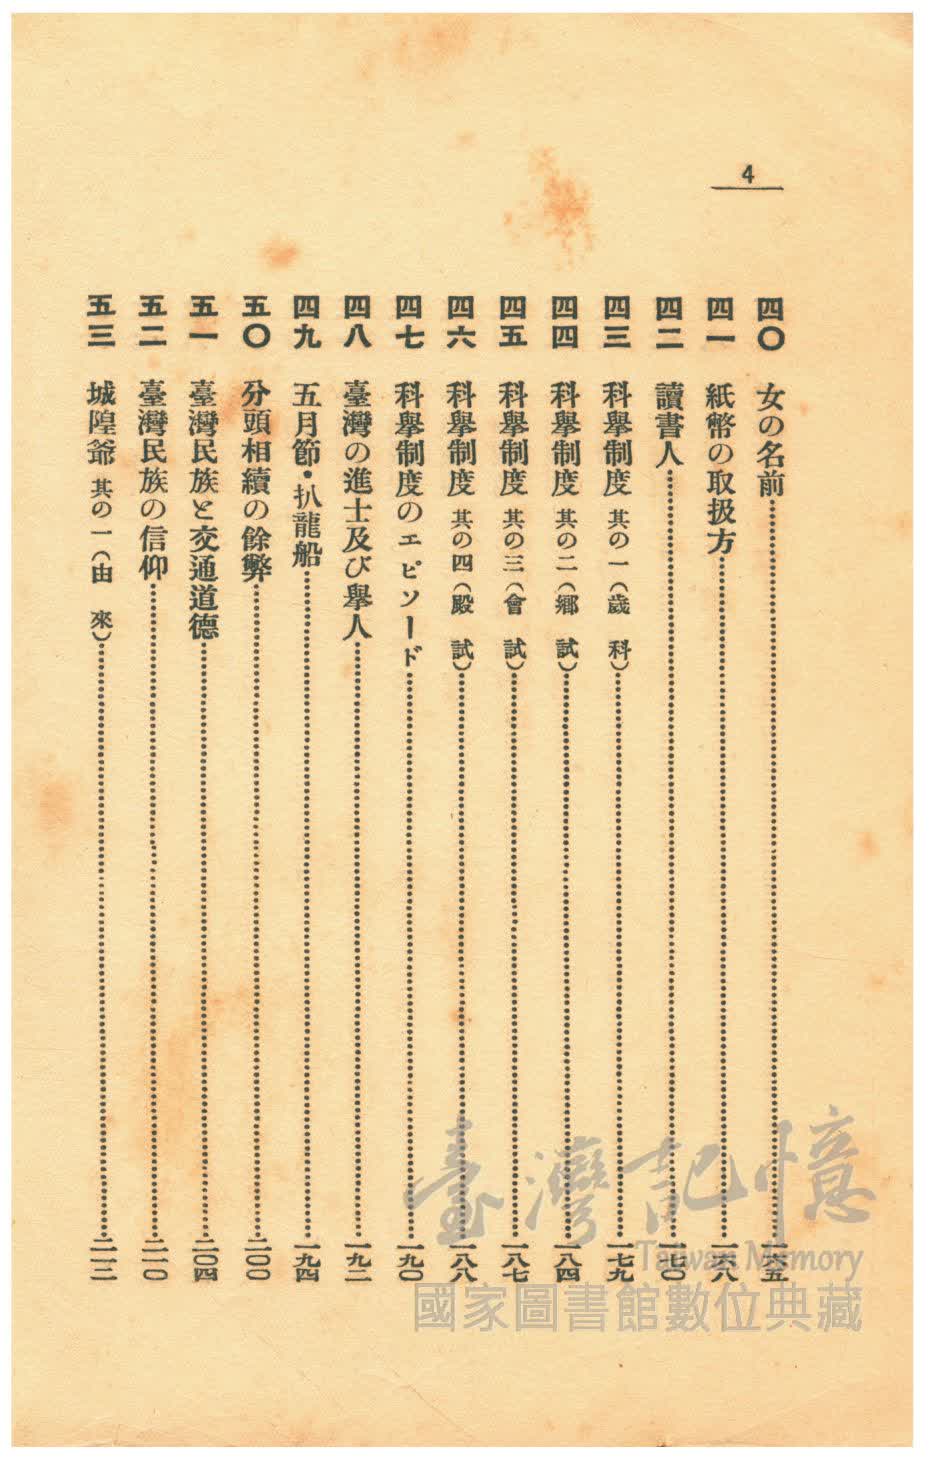 4
四〇 女の名前……一六五
四一 紙幣の取扱方……一六八
四二 讀書人……一七〇
四三 科擧制度 其の一（歲 科）……一七九
四四 科擧制度 其の二（鄕 試）……一八四
四五 科擧制度 其の三（會 試）……一八七
四六 科擧制度 其の四（殿 試）……一八八
四七 科擧制度のエピソード……一九〇
四八 臺灣の進士及び擧人……一九二
四九 五月節・扒龍船……一九四
五〇 分頭相續の餘弊……二〇〇
五一 臺灣民族と交通道德……二〇四
五二 臺灣民族の信仰……二一〇
五三 城隍爺 其の一（由 來）……
臺灣記憶
Taiwan Memory
國家圖書館數位典藏